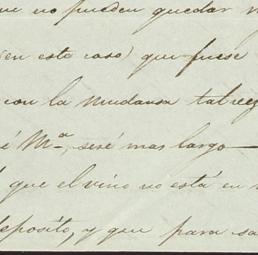 que no pueden quedar
(en este caso) que fuese
con la mudansa tal vez
é Mª, seré mas largo —
que el vino no está en
deposito, y que para